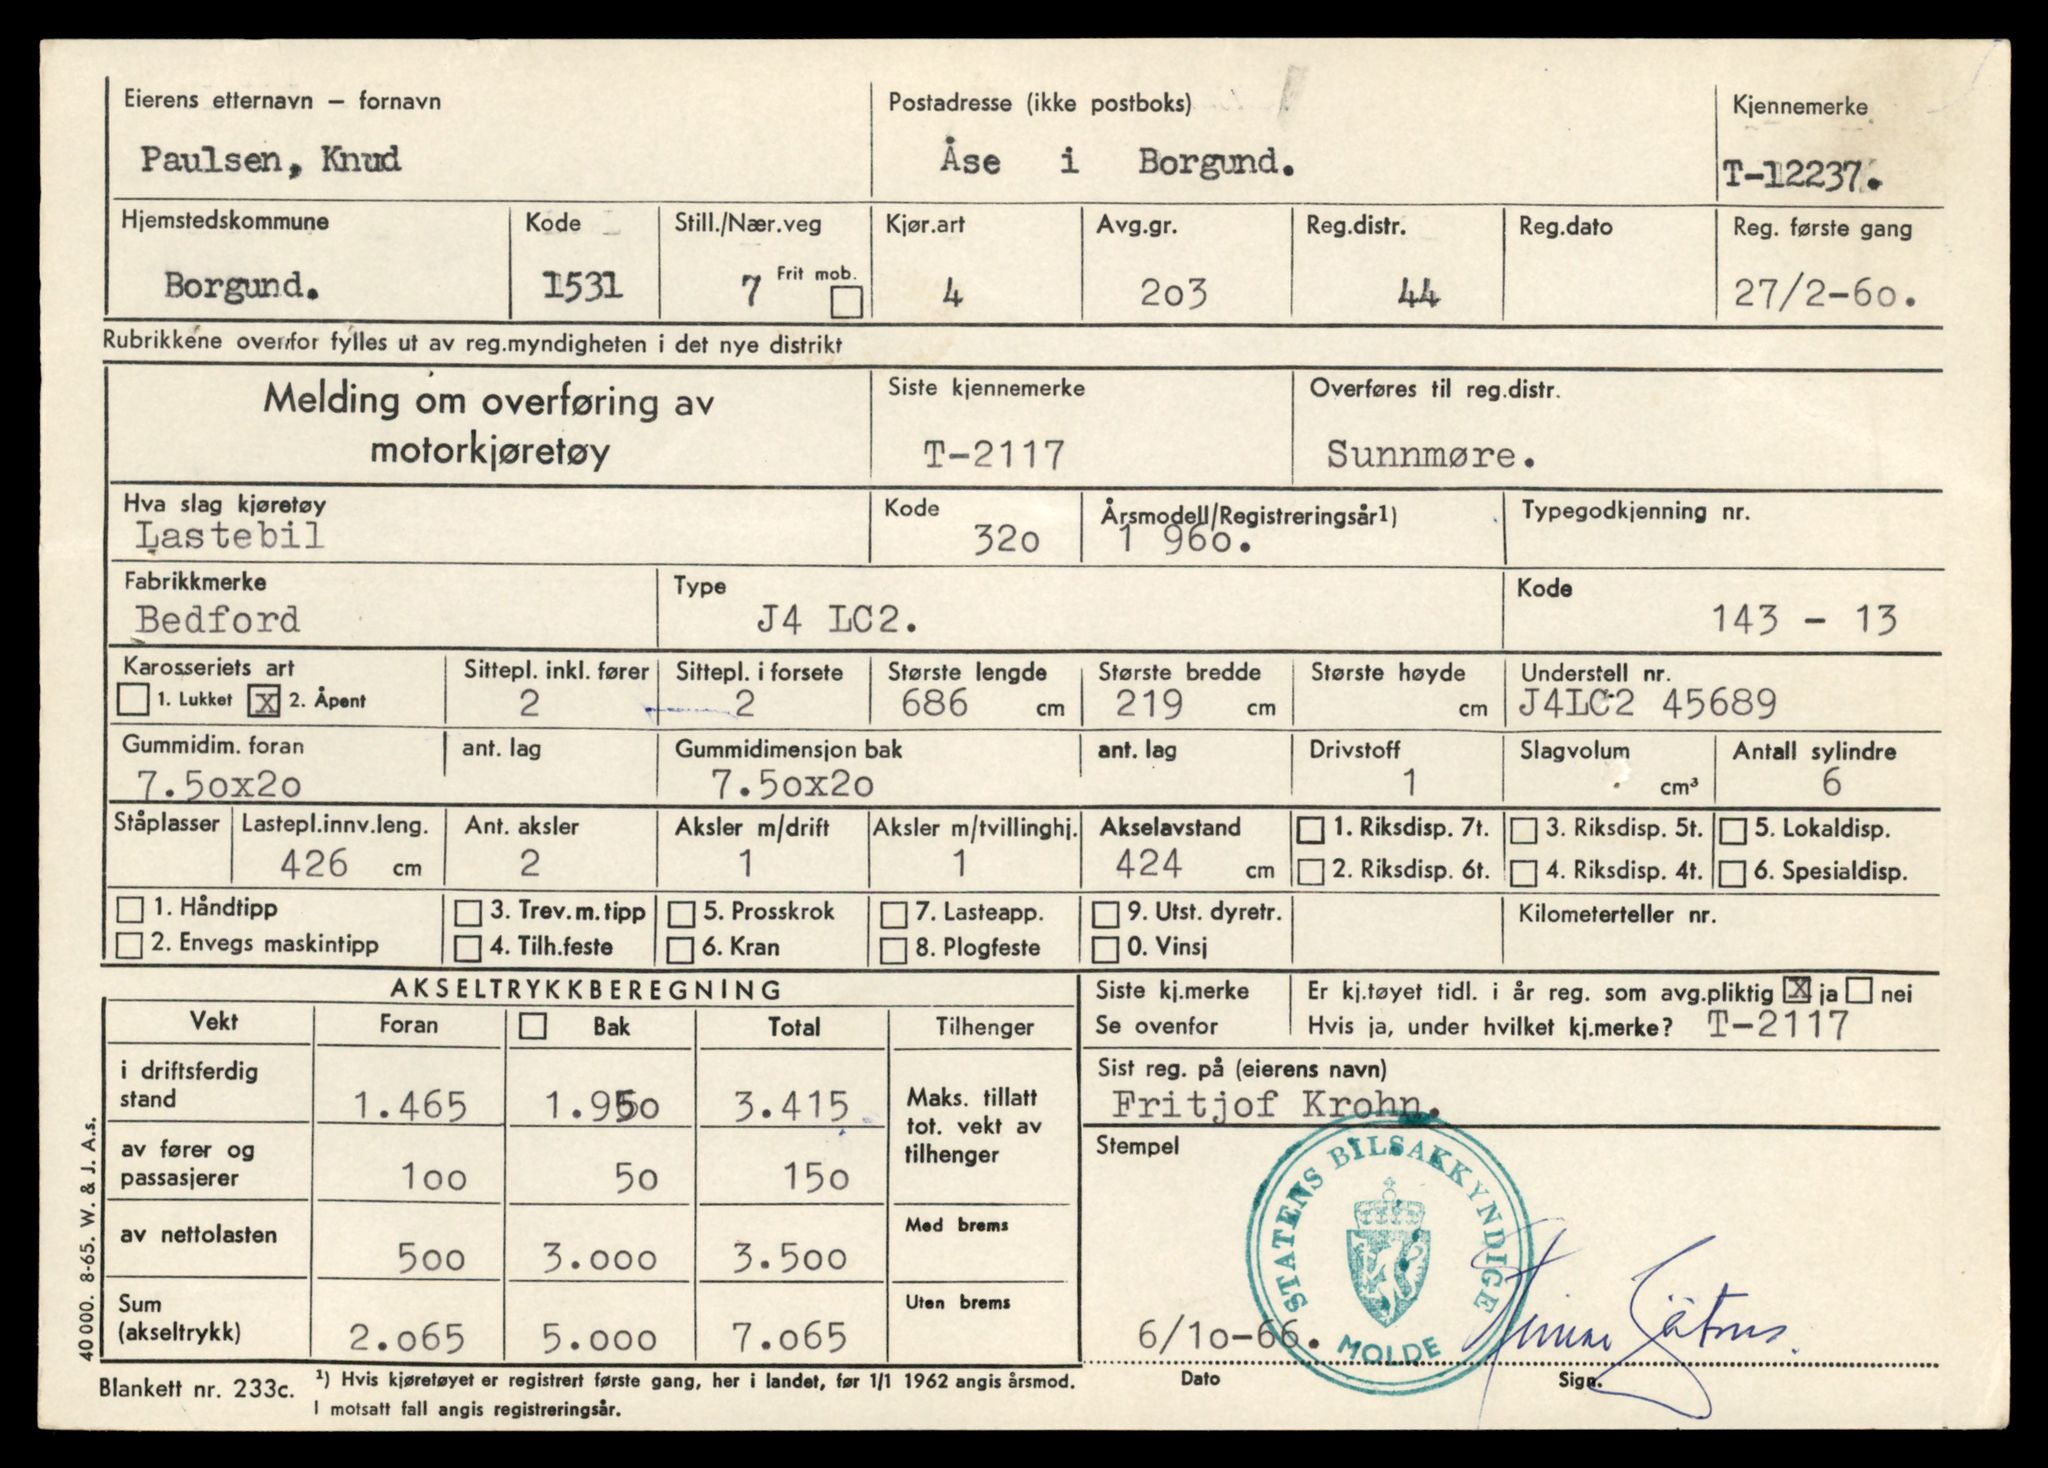 Eierens etternavn – fornavn
Paulsen, Knud
Postadresse (ikke postboks)
Åse i Borgund.
Kjennemerke
T-12237.
Hjemstedskommune
Borgund.
Kode
1531
Still./Nær.veg
7 Frit mob.
Kjør.art
4
Avg.gr.
203
Reg.distr.
44
Reg.dato
Reg. første gang
27/2-60.
Rubrikkene overfor fylles ut av reg.myndigheten i det nye distrikt
Melding om overføring av
motorkjøretøy
Siste kjennemerke
T-2117
Overføres til reg.distr.
Sunnmøre.
Hva slag kjøretøy
Lastebil
Kode
320
Årsmodell/Registreringsår1)
1 960.
Typegodkjenning nr.
Fabrikkmerke
Bedford
Type
J4 LC2.
Kode
143 - 13
Karosseriets art
1. Lukket X 2. Åpent
Sittepl. inkl. fører
2
Sittepl. i forsete
2
Største lengde
686 cm
Største bredde
219 cm
Største høyde
cm
Understell nr.
J4LC2 45689
Gummidim. foran
7.50x20
ant. lag
Gummidimensjon bak
7.50x20
ant. lag
Drivstoff
1
Slagvolum
cm³
Antall sylindre
6
Ståplasser
Lastepl.innv.leng.
426 cm
Ant. aksler
2
Aksler m/drift
1
Aksler m/tvillinghj.
1
Akselavstand
424 cm
1. Riksdisp. 7t.
2. Riksdisp. 6t.
3. Riksdisp. 5t.
4. Riksdisp. 4t.
5. Lokaldisp.
6. Spesialdisp.
1. Håndtipp
2. Envegs maskintipp
3. Trev. m. tipp
4. Tilh.feste
5. Prosskrok
6. Kran
7. Lasteapp.
8. Plogfeste
9. Utst. dyretr.
0. Vinsj
Kilometerteller nr.
AKSELTRYKKBEREGNING
Vekt Foran Bak Total Tilhenger
i driftsferdig
stand 1.465 1.950 3.415
av fører og
passasjerer 100 50 150
av nettolasten 500 3.000 3.500
Sum
(akseltrykk) 2.065 5.000 7.065
Maks. tillatt
tot. vekt av
tilhenger
Med brems
Uten brems
Siste kj.merke
Se ovenfor
Er kj.tøyet tidl. i år reg. som avg.pliktig X ja nei
Hvis ja, under hvilket kj.merke? T-2117
Sist reg. på (eierens navn)
Fritjof Krohn.
Stempel
STATENS BILSAKKYNDIGE
MOLDE
6/10-66.
Dato
Sign.
40 000. 8-65. W. & J. A.s.
Blankett nr. 233c.
1) Hvis kjøretøyet er registrert første gang, her i landet, før 1/1 1962 angis årsmod.
I motsatt fall angis registreringsår.